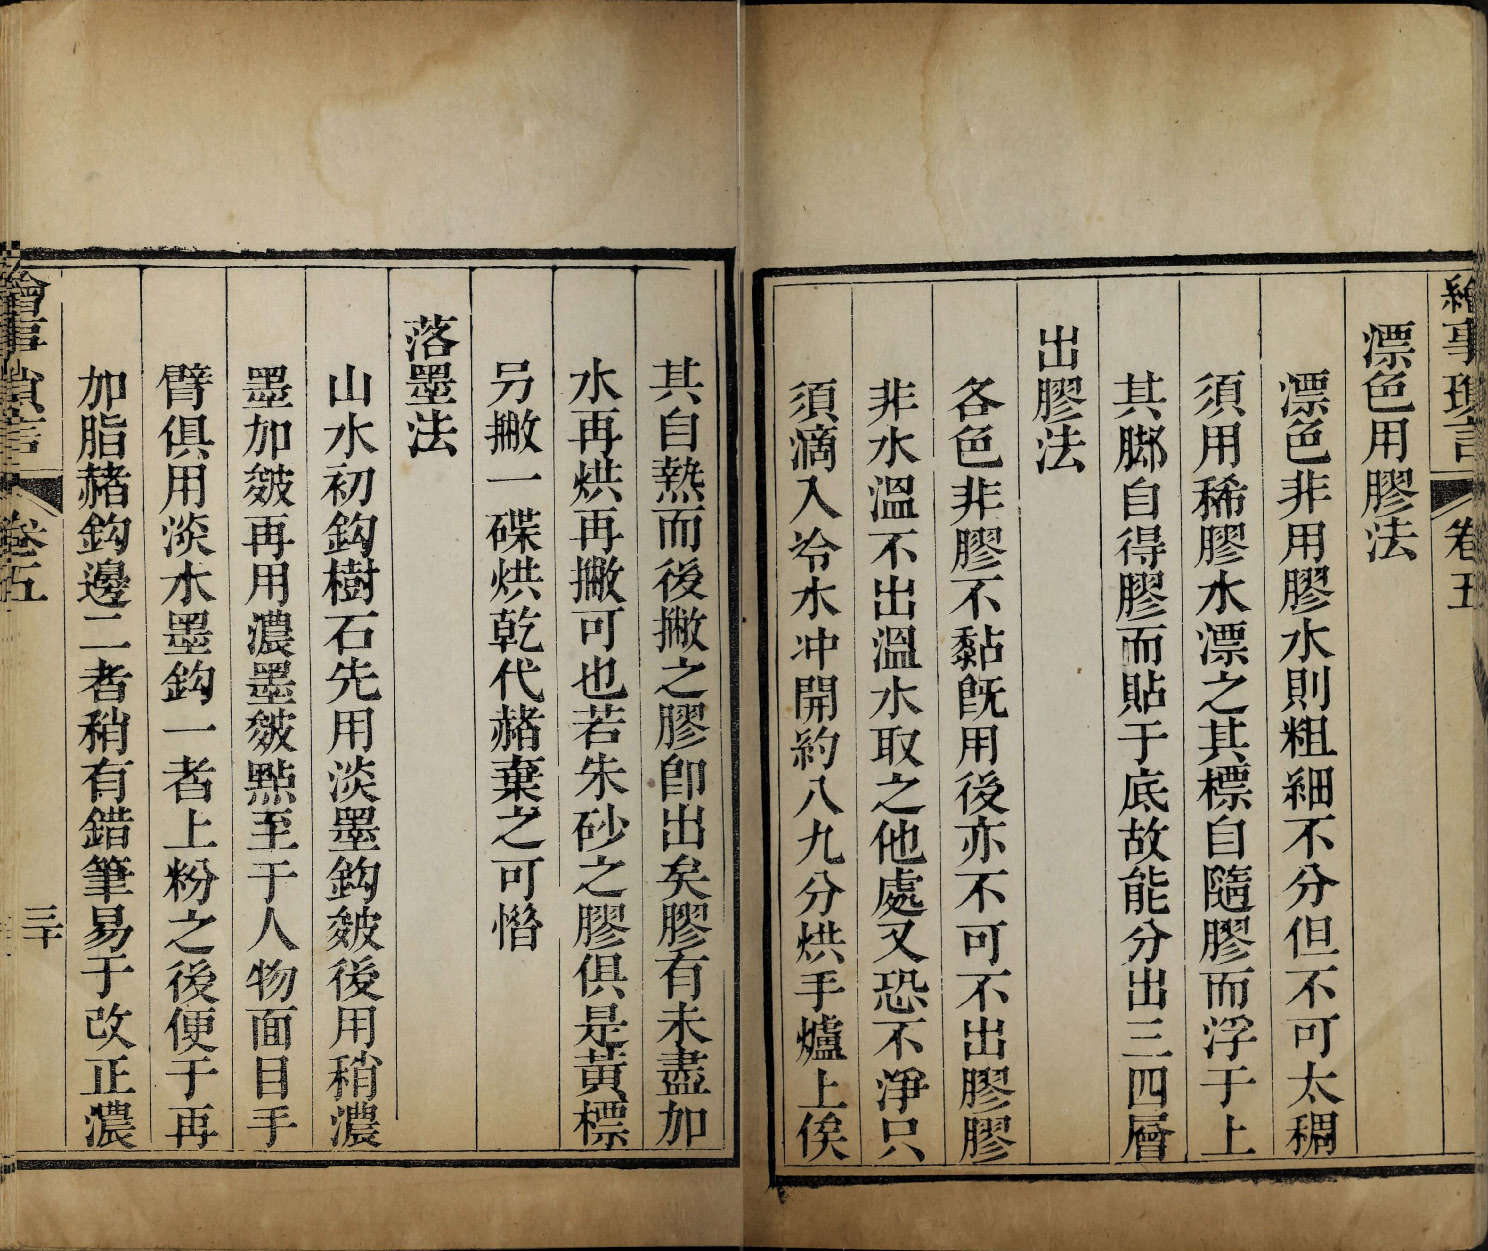 繪事瑣言 卷五
漂色用膠法
漂色非用膠水則粗細不分但不可太稠
須用稀膠水漂之其標自隨膠而浮于上
其脚自得膠而貼于底故能分出三四層
出膠法
各色非膠不黏旣用後亦不可不出膠膠
非水溫不出溫水取之他處又恐不淨只
須滴入冷水冲開約八九分烘手爐上俟
其自熱而後撇之膠卽出矣膠有未盡加
水再烘再撇可也若朱砂之膠俱是黃標
另撇一碟烘乾代赭棄之可惜
落墨法
山水初鈎樹石先用淡墨鈎皴後用稍濃
墨加皴再用濃墨皴點至于人物面目手
臂俱用淡水墨鈎一者上粉之後便于再
加脂赭鈎邊二者稍有錯筆易于改正濃
繪事瑣言 卷五 三十